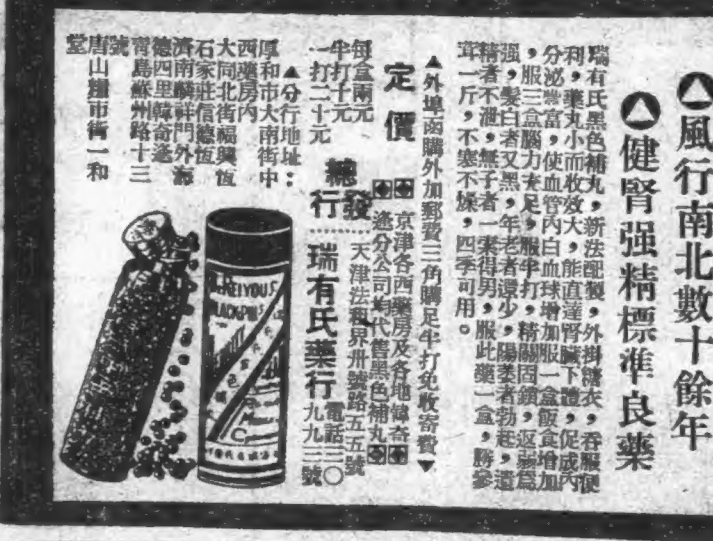 風行南北數十餘年
健腎强精標準良藥
瑞有氏黑色補丸，新法配製，外掛糖衣，吞服便
利，藥丸小而收效大，能直達腎臟下體，促成內
分泌豐富，使血管內白血球增加服一盒飯食增加
，服三盒腦力充足，服半打，精關固鎖，返弱爲
强，髮白者又黑，年老者還少，陽萎者勃起，遺
精者不泄，無子者一索得男，服此藥一盒，勝參
茸一斤，不寒不燥，四季可用。
▲外埠函購外加郵費三角購足半打免收寄費▼
定價
每盒兩元
半打十元
一打二十元
京津各西藥房及各地韓奇
逢分公司均代售黑色補丸
總發行
天津法租界卅號路五五號
瑞有氏藥行
電話三〇
九九二號
▲分行地址：
厚和市大南街中
西藥房內
大同北街福興恆
石家莊信德恆
濟南麟祥門外海
德四里韓奇逢
青島蘇州路十三
號
唐山糧市街一和
堂
REIYOUS
BLACKPILLS